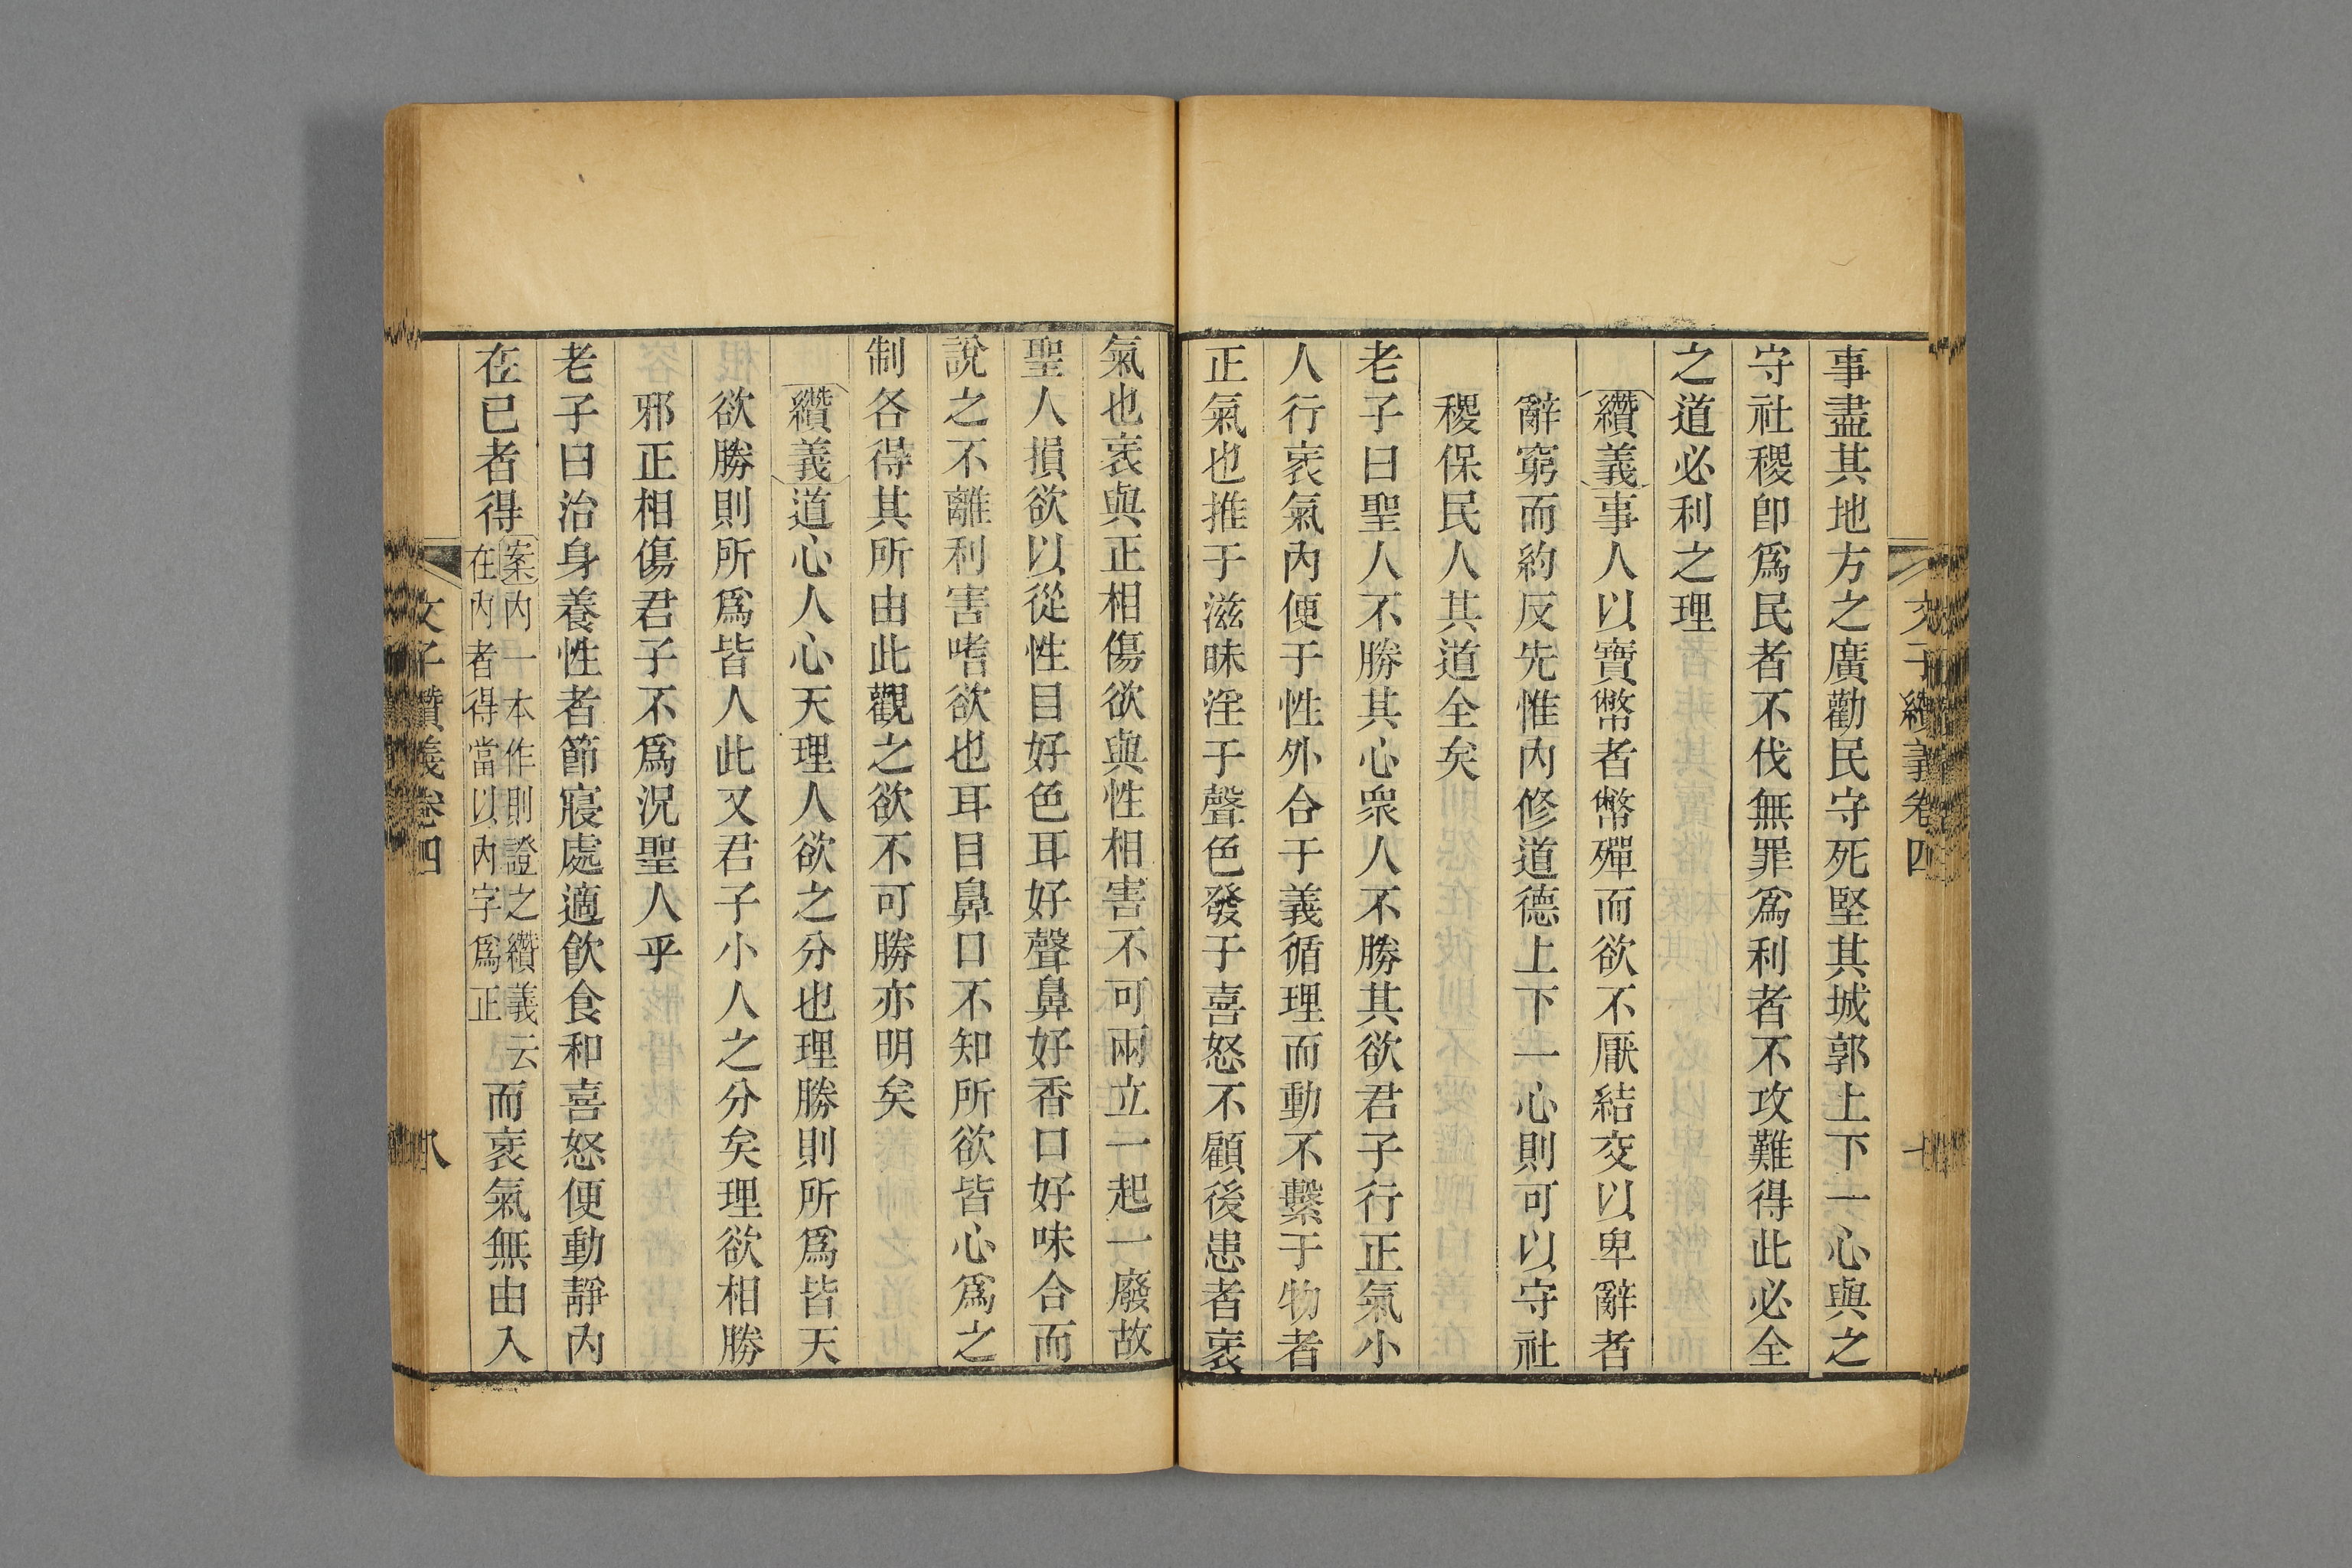 文子纘義卷四
事盡其地方之廣勸民守死堅其城郭上下一心與之
守社稷卽爲民者不伐無罪爲利者不攻難得此必全
之道必利之理
纘義事人以寶幣者幣殫而欲不厭結交以卑辭者
辭窮而約反先惟內修道德上下一心則可以守社
稷保民人其道全矣
老子曰聖人不勝其心衆人不勝其欲君子行正氣小
人行衺氣內便于性外合于義循理而動不繫于物者
正氣也推于滋味淫于聲色發于喜怒不顧後患者衺
氣也衺與正相傷欲與性相害不可兩立一起一廢故
聖人損欲以從性目好色耳好聲鼻好香口好味合而
說之不離利害嗜欲也耳目鼻口不知所欲皆心爲之
制各得其所由此觀之欲不可勝亦明矣
纘義道心人心天理人欲之分也理勝則所爲皆天
欲勝則所爲皆人此又君子小人之分矣理欲相勝
邪正相傷君子不爲況聖人乎
老子曰治身養性者節寢處適飲食和喜怒便動靜內
在己者得
案內一本作則證之纘義云
在內者得當以內字爲正
而衺氣無由入
文子纘義卷四
八